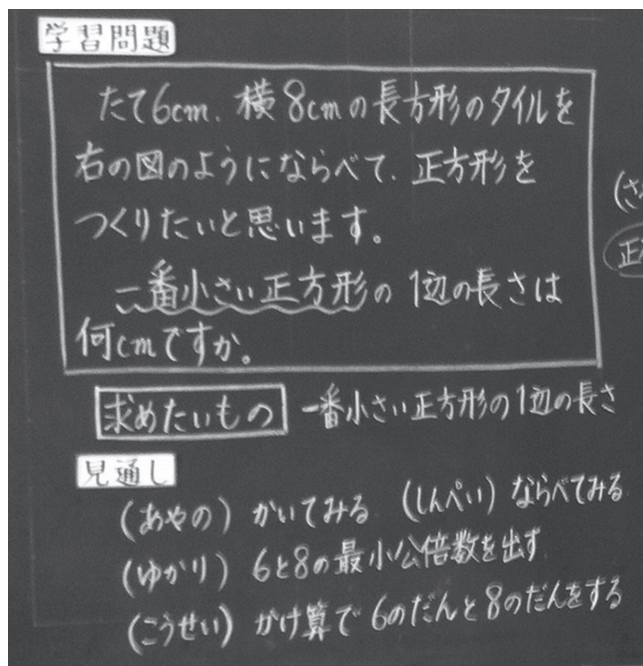 学習問題
たて6cm、横8cmの長方形のタイルを
右の図のようにならべて、正方形を
つくりたいと思います。
一番小さい正方形の1辺の長さは
何cmですか。
求めたいもの 一番小さい正方形の1辺の長さ
見通し
(あやの) かいてみる (しんぺい) ならべてみる
(ゆかり) 6と8の最小公倍数を出す
(こうせい) かけ算で6のだんと8のだんをする